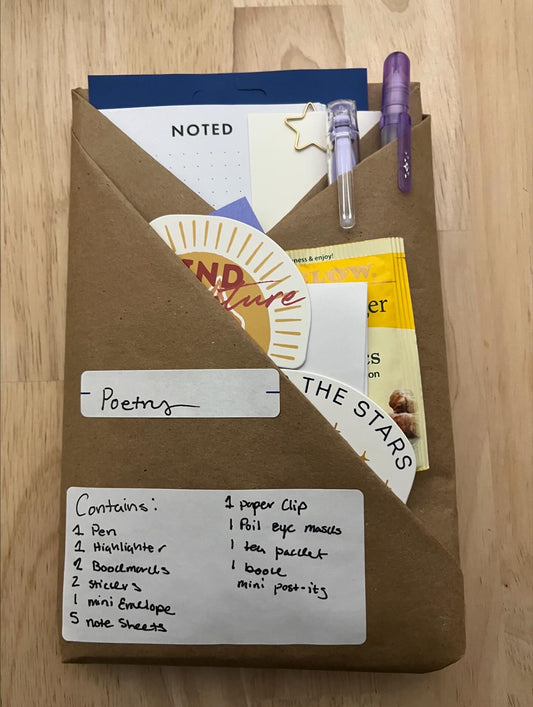 NOTED
ness & enjoy!
LOW
ger
ture
THE STARS
on
Poetry
Contains:
1 Pen
1 Highlighter
2 Bookmarks
2 stickers
1 mini Envelope
5 note sheets
1 paper clip
1 Foil eye masks
1 tea packet
1 book
mini post-its